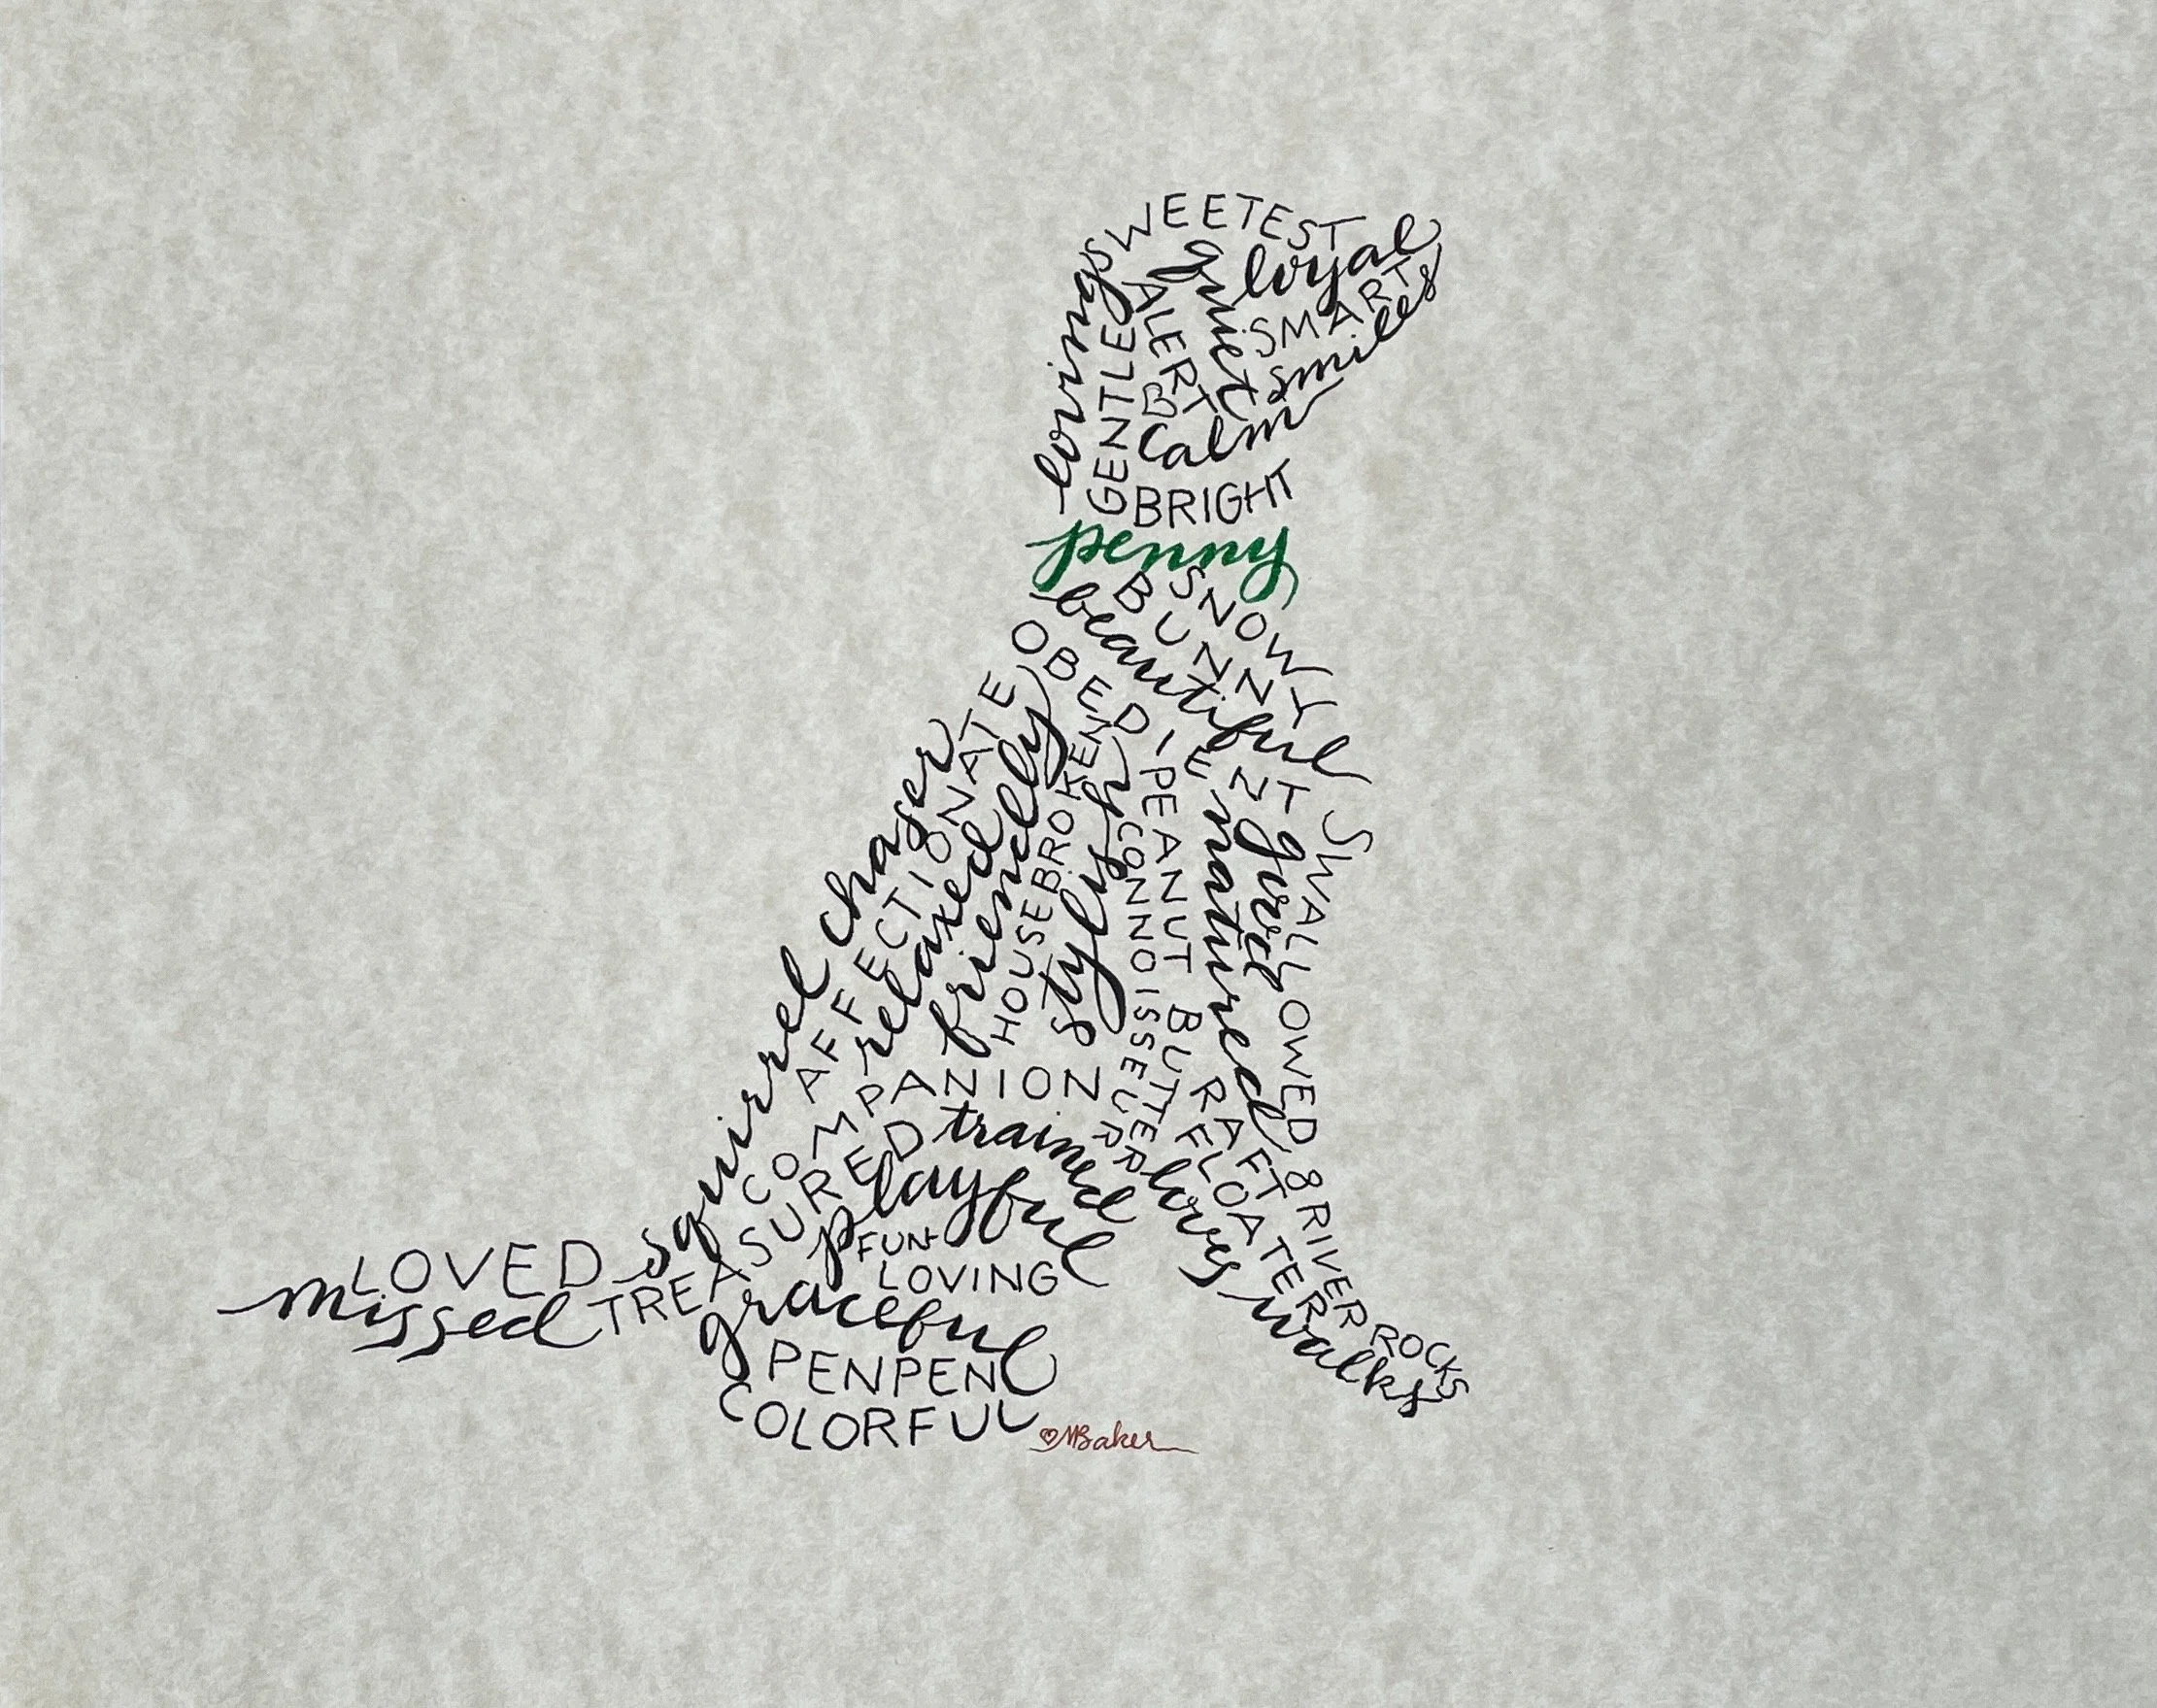 SWEETEST
loving
GENTLE
ALERT
quiet
loyal
SMART
smiles
B
calm
BRIGHT
penny
SNOWY
BUNNY
beautiful
OBEDIENT
squirrel chaser
AFFECTIONATE
relaxed
friendly
HOUSEBROKEN
stylish
PEANUT BUTTER
CONNOISSEUR
good
natured
SWALLOWED 8 RIVER ROCKS
RAFT
FLOATER
loves walks
COMPANION
trained
TREASURED
playful
FUN-
LOVING
LOVED
missed
graceful
PENPEN
COLORFUL
MBaker